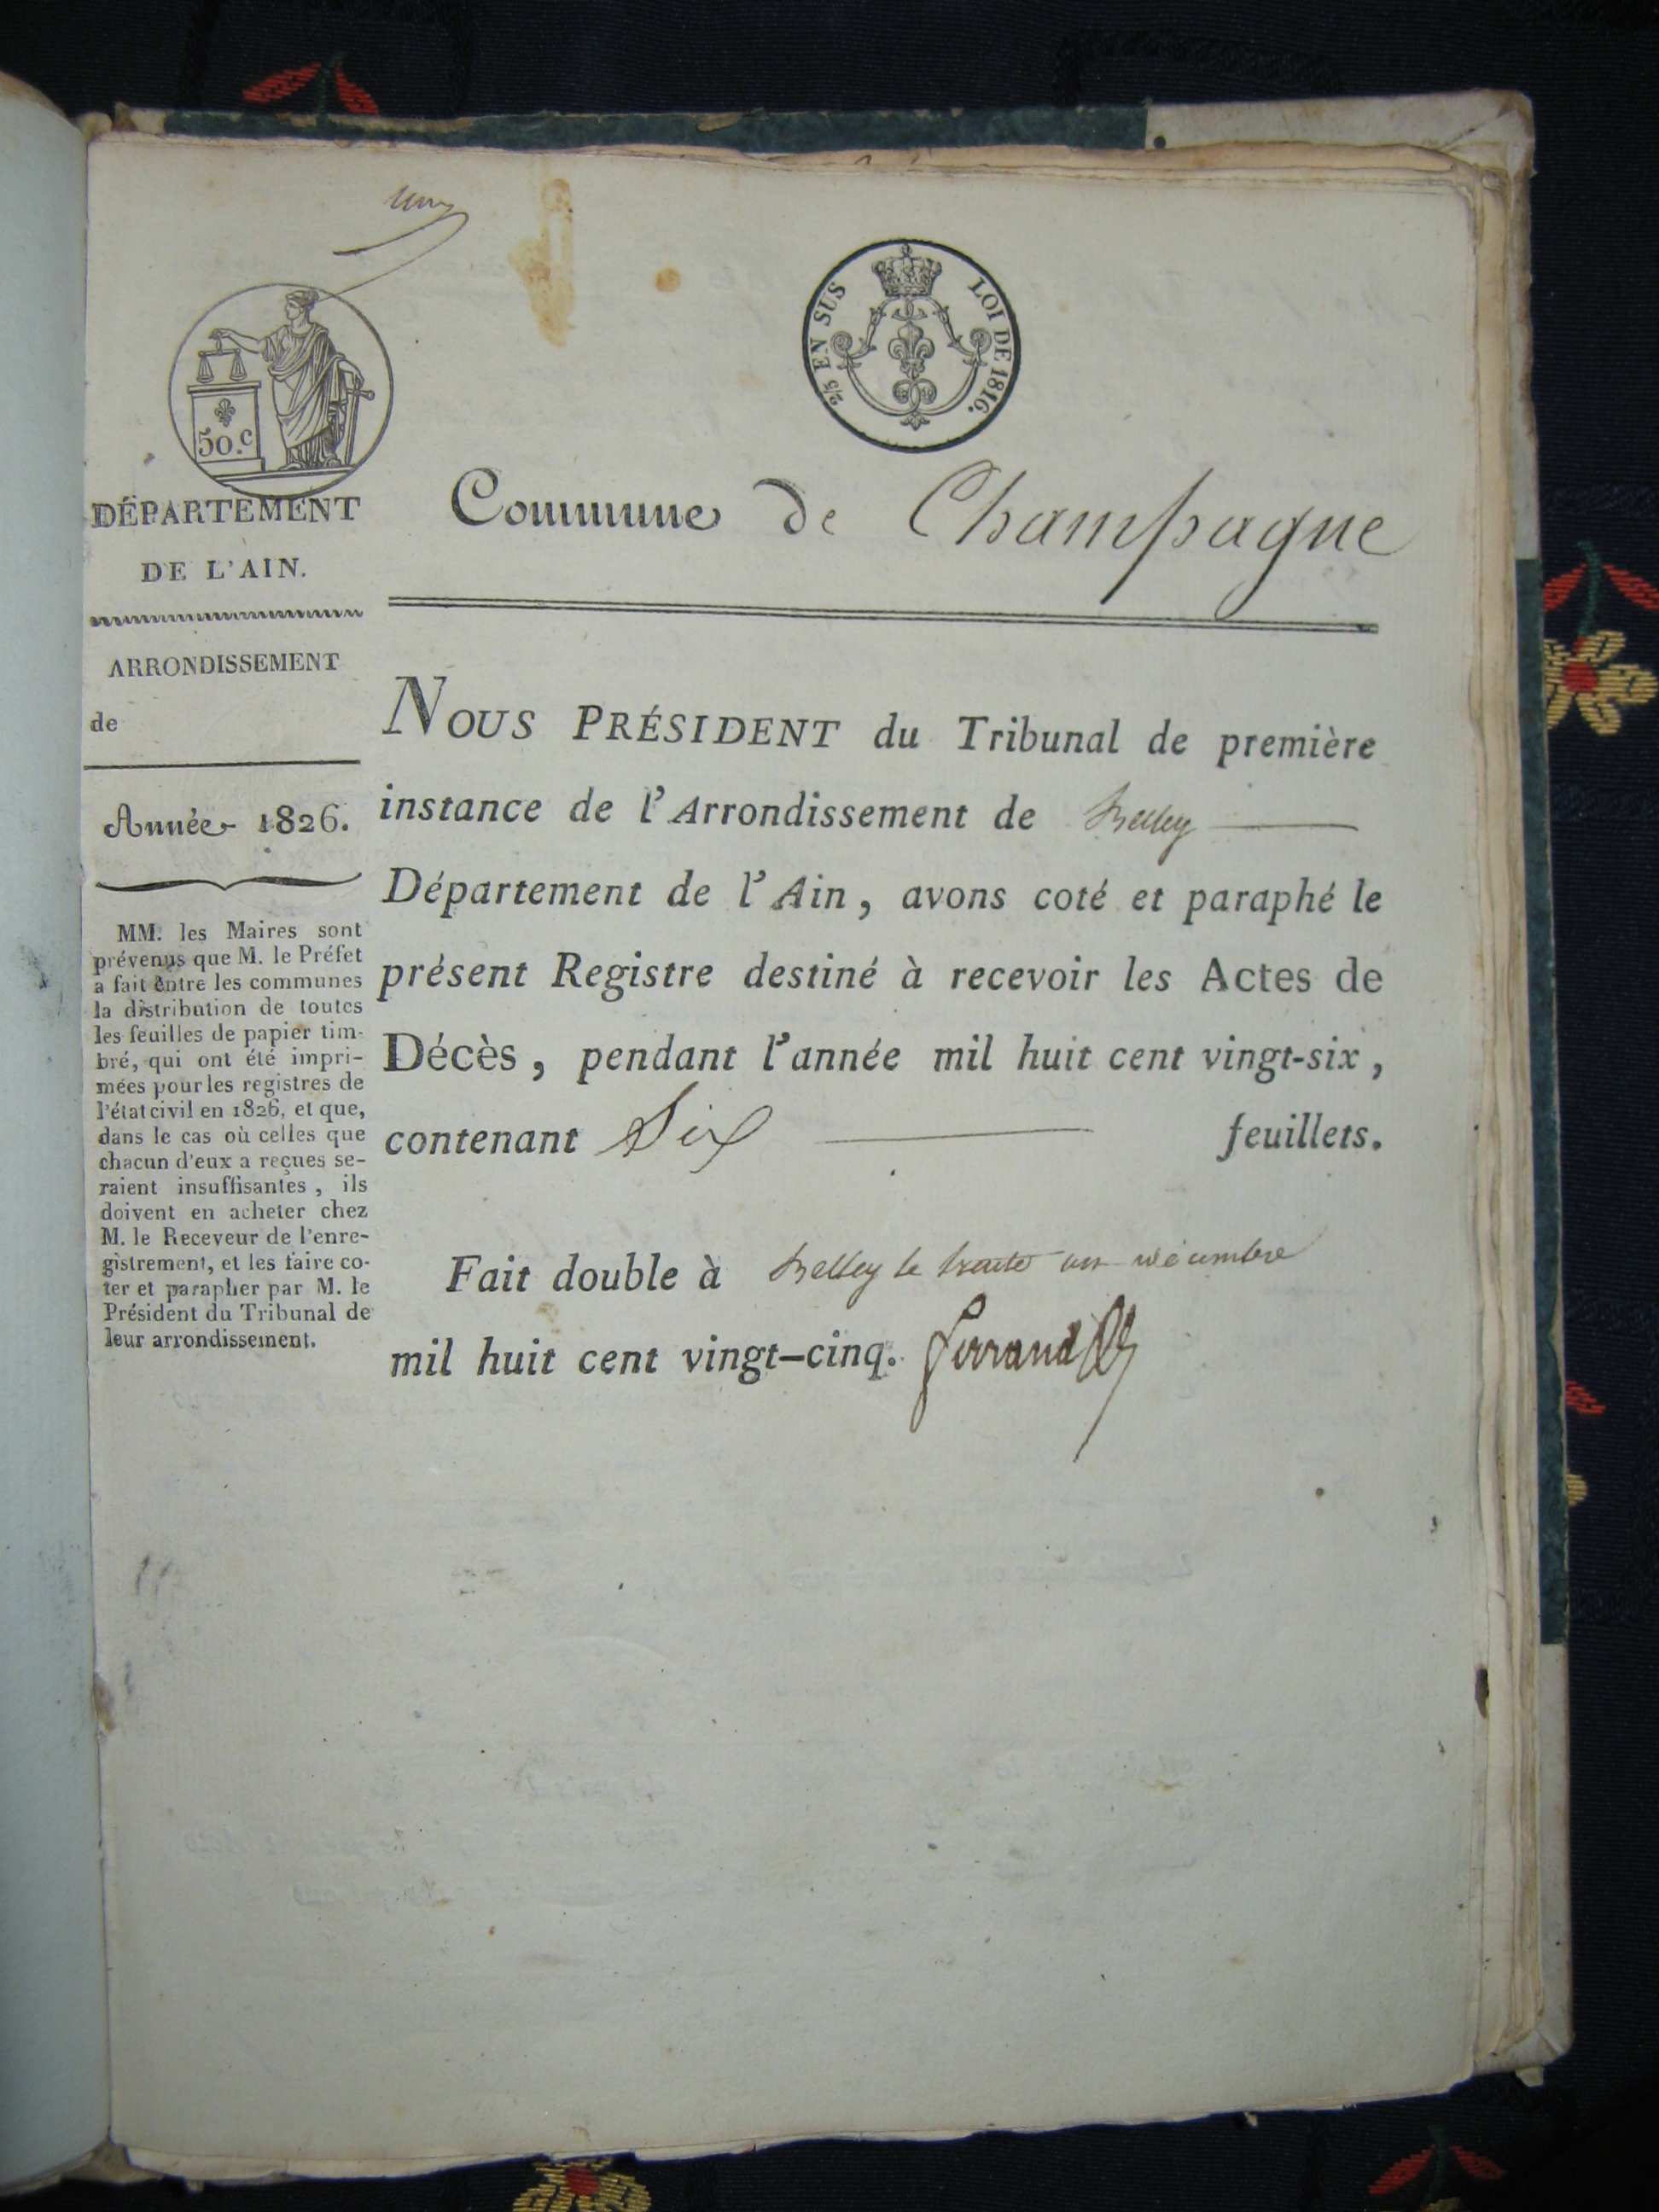 50.c
2/5 EN SUS
LOI DE 1816.
DÉPARTEMENT
DE L'AIN.
ARRONDISSEMENT
de
Année 1826.
MM. les Maires sont
prévenus que M. le Préfet
a fait entre les communes
la distribution de toutes
les feuilles de papier tim-
bré, qui ont été impri-
mées pour les registres de
l'état civil en 1826, et que,
dans le cas où celles que
chacun d'eux a reçues se-
raient insuffisantes, ils
doivent en acheter chez
M. le Receveur de l'enre-
gistrement, et les faire co-
ter et parapher par M. le
Président du Tribunal de
leur arrondissement.
Commune de Champagne
NOUS PRÉSIDENT du Tribunal de première
instance de l'Arrondissement de Belley
Département de l'Ain, avons coté et paraphé le
présent Registre destiné à recevoir les Actes de
Décès, pendant l'année mil huit cent vingt-six,
contenant Six feuillets.
Fait double à Belley le trente un décembre
mil huit cent vingt-cinq. Ferrand